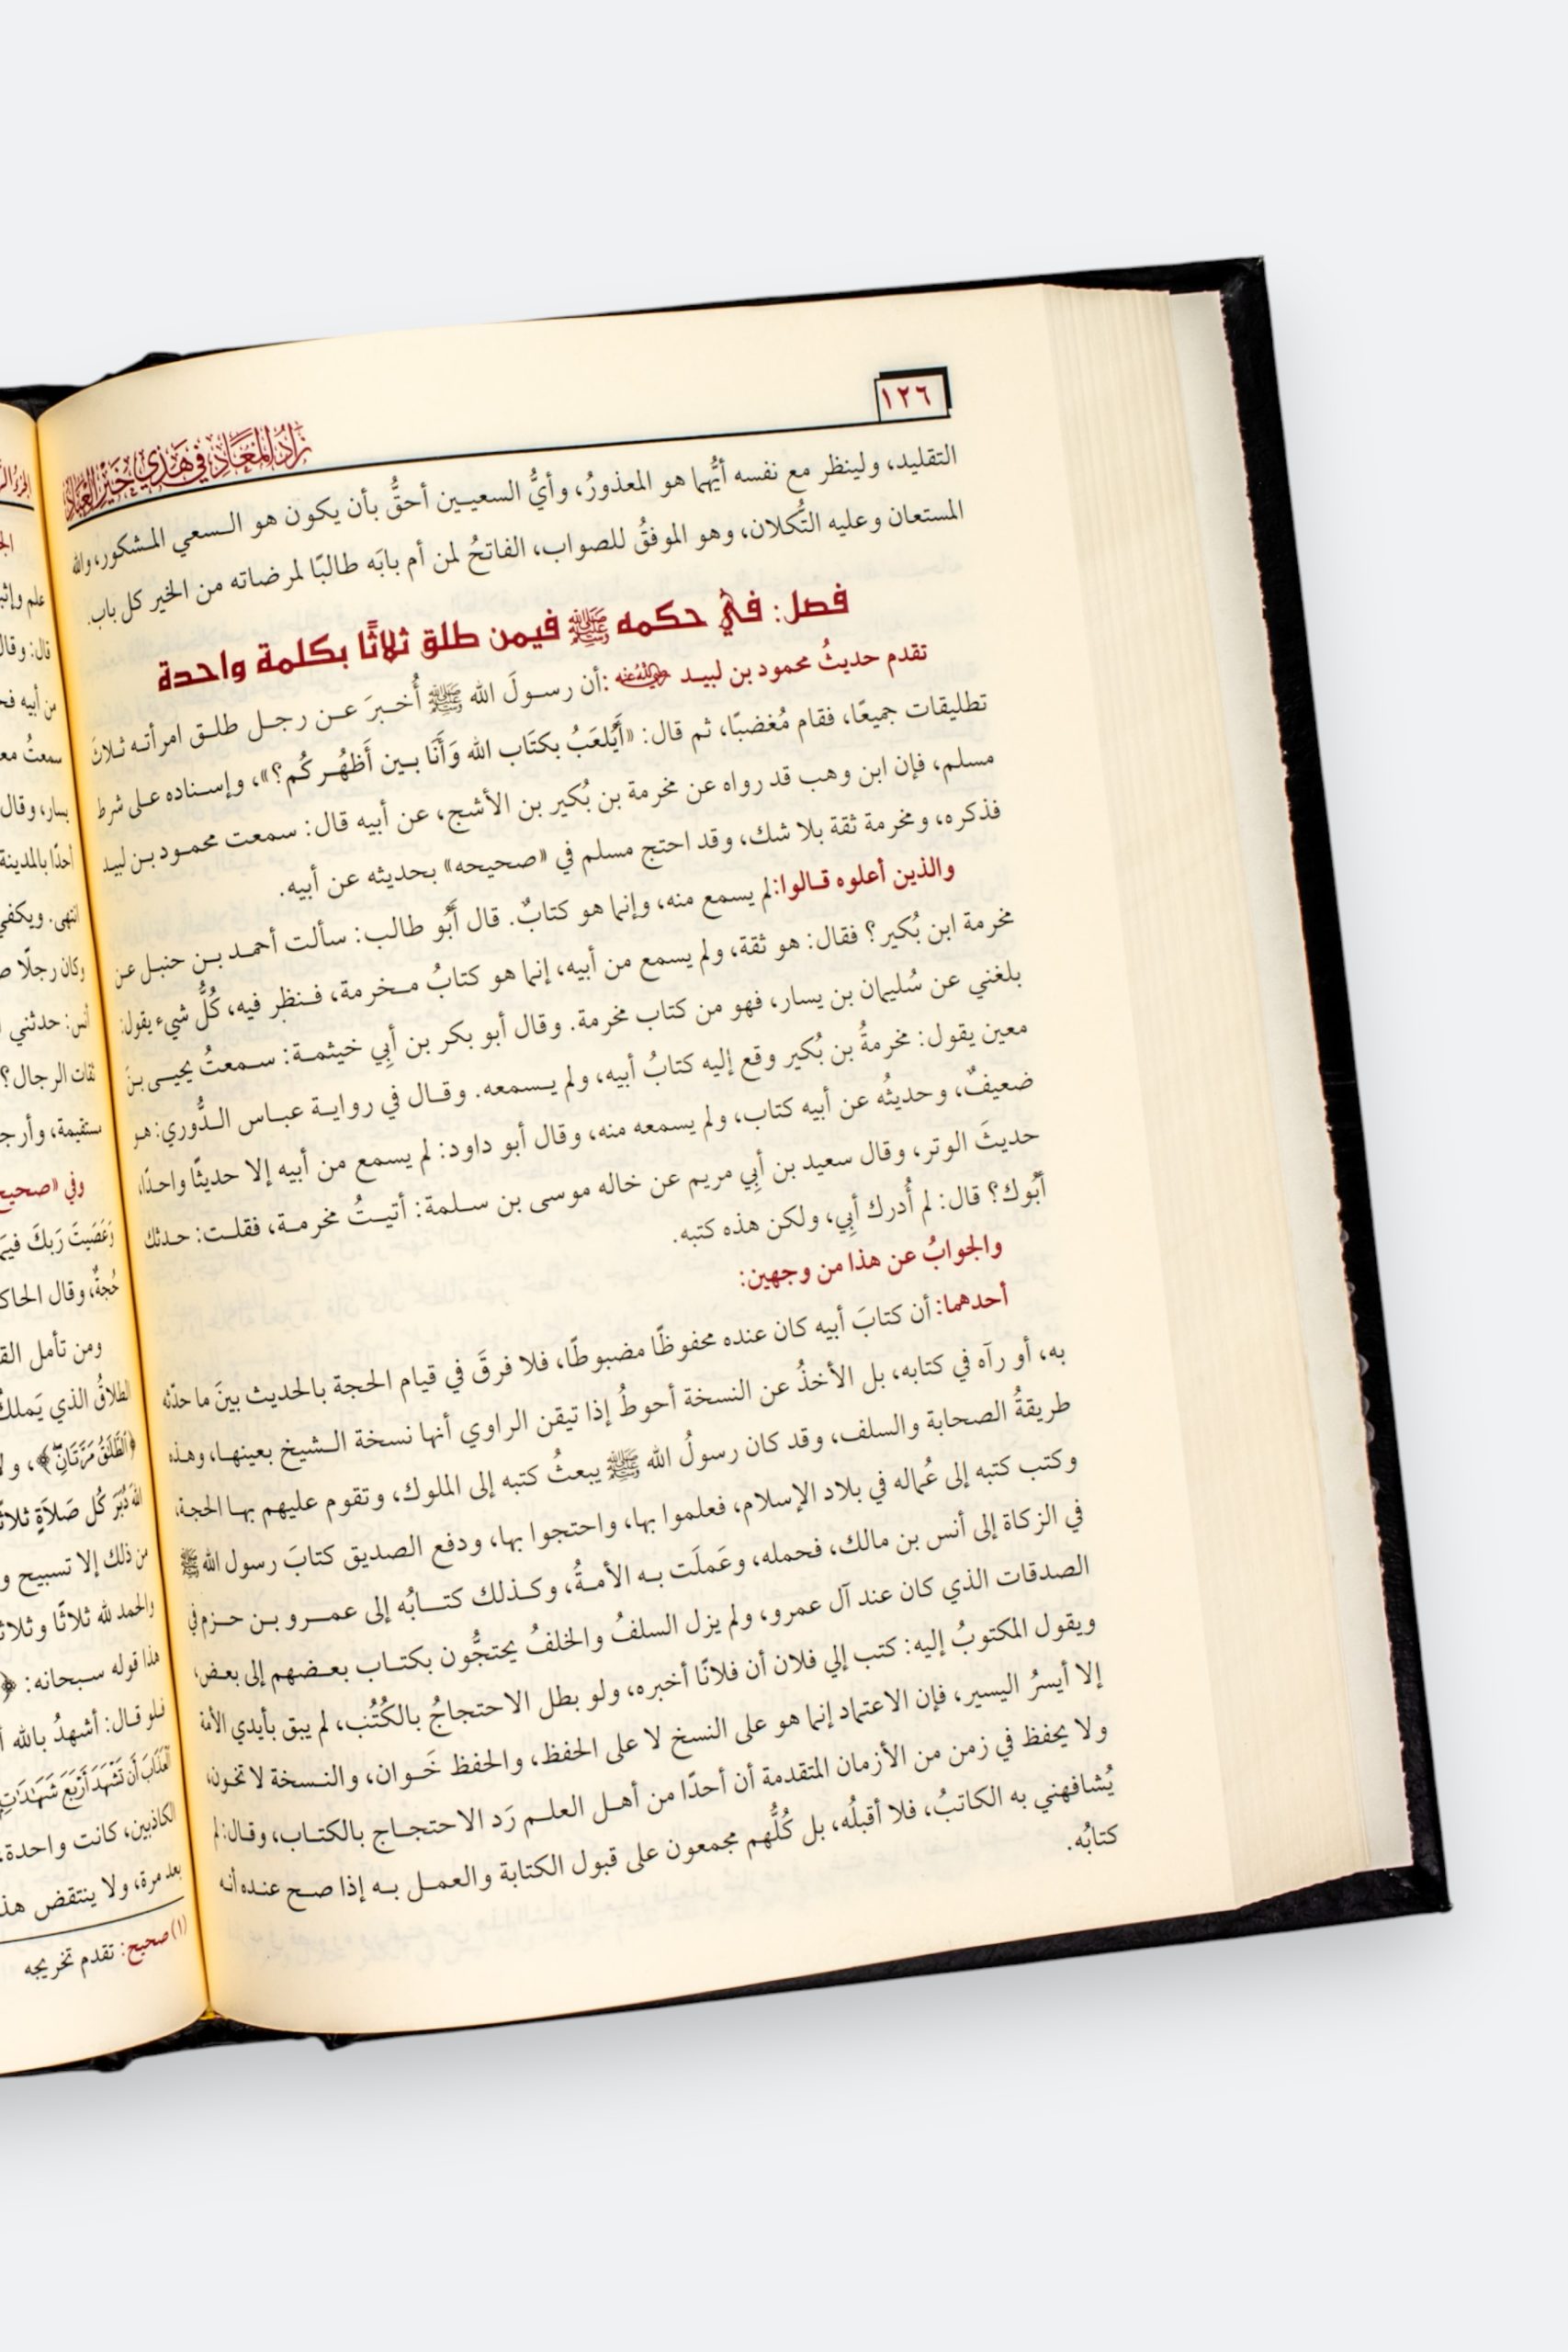 ١٢٦
زَادُ المَعَادِ فِي هَدْيِ خَيْرِ العِبَادِ
التقليد، ولينظر مع نفسه أيُّهما هو المعذورُ، وأيُّ السعيين أحقُّ بأن يكون هو السعي المشكور، والله
المستعان وعليه التُّكلان، وهو الموفقُ للصواب، الفاتحُ لمن أم بابَه طالبًا لمرضاته من الخير كل باب.
فصل: في حكمه ﷺ فيمن طلق ثلاثًا بكلمة واحدة
تقدم حديثُ محمود بن لبيد رضي الله عنه: أن رسولَ الله ﷺ أُخبرَ عن رجل طلق امرأته ثلاثَ
تطليقات جميعًا، فقام مُغضبًا، ثم قال: «أَيُلعَبُ بكتَاب الله وَأَنَا بين أَظهُركُم؟»، وإسناده على شرط
مسلم، فإن ابن وهب قد رواه عن مخرمة بن بُكير بن الأشج، عن أبيه قال: سمعت محمود بن لبيد
فذكره، ومخرمة ثقة بلا شك، وقد احتج مسلم في «صحيحه» بحديثه عن أبيه.
والذين أعلوه قالوا: لم يسمع منه، وإنما هو كتابٌ. قال أَبُو طالب: سألت أحمد بن حنبل عن
مخرمة ابن بُكير؟ فقال: هو ثقة، ولم يسمع من أبيه، إنما هو كتابُ مخرمة، فنظر فيه، كُلُّ شيء يقول:
بلغني عن سُليمان بن يسار، فهو من كتاب مخرمة. وقال أبو بكر بن أَبِي خيثمة: سمعتُ يحيى بنَ
معين يقول: مخرمةُ بن بُكير وقع إليه كتابُ أبيه، ولم يسمعه. وقال في رواية عباس الدُّوري: هو
ضعيفٌ، وحديثُه عن أبيه كتاب، ولم يسمعه منه، وقال أبو داود: لم يسمع من أبيه إلا حديثًا واحدًا،
حديثَ الوتر، وقال سعيد بن أَبِي مريم عن خاله موسى بن سلمة: أتيتُ مخرمة، فقلت: حدثك
أبُوك؟ قال: لم أُدرك أبِي، ولكن هذه كتبه.
والجوابُ عن هذا من وجهين:
أحدهما: أن كتابَ أبيه كان عنده محفوظًا مضبوطًا، فلا فرقَ في قيام الحجة بالحديث بينَ ما حدّثه
به، أو رآه في كتابه، بل الأخذُ عن النسخة أحوطُ إذا تيقن الراوي أنها نسخة الشيخ بعينها، وهذه
طريقةُ الصحابة والسلف، وقد كان رسولُ الله ﷺ يبعثُ كتبه إلى الملوك، وتقوم عليهم بها الحجة،
وكتب كتبه إلى عُماله في بلاد الإسلام، فعلموا بها، واحتجوا بها، ودفع الصديق كتابَ رسول الله ﷺ
في الزكاة إلى أنس بن مالك، فحمله، وعَملَت به الأمةُ، وكذلك كتابُه إلى عمرو بن حزم في
الصدقات الذي كان عند آل عمرو، ولم يزل السلفُ والخلفُ يحتجُّون بكتاب بعضهم إلى بعض،
ويقول المكتوبُ إليه: كتب إلي فلان أن فلانًا أخبره، ولو بطل الاحتجاجُ بالكُتُب، لم يبق بأيدي الأمة
إلا أيسرُ اليسير، فإن الاعتماد إنما هو على النسخ لا على الحفظ، والحفظ خَوان، والنسخة لا تخون،
ولا يحفظ في زمن من الأزمان المتقدمة أن أحدًا من أهل العلم رَد الاحتجاج بالكتاب، وقال: لم
يُشافهني به الكاتبُ، فلا أقبلُه، بل كُلُّهم مجمعون على قبول الكتابة والعمل به إذا صح عنده أنه
كتابُه.
علم وإثب
قال: وقال
من أبيه فح
سمعتُ مع
يسار، وقال
أحدًا بالمدينة
انتهى. ويكفي
وكان رجلًا ص
أنس: حدثني
ثقات الرجال؟
مستقيمة، وأرج
وفي «صحيح
وَعَصَيتَ رَبكَ فيمَ
حُجةٌ، وقال الحاك
ومن تأمل الق
الطلاقُ الذي يَملك
﴿ٱلطَّلَٰقُ مَرَّتَانِ﴾، ولا
الله دُبُرَ كُل صَلاَةٍ ثلاثً
من ذلك إلا تسبيح و
والحمد لله ثلاثًا وثلاثـ
هذا قوله سبحانه: ﴿
فلو قال: أشهدُ بالله أ
ٱلْعَذَابَ أَن تَشْهَدَ أَرْبَعَ شَهَٰدَٰتٍ
الكاذبين، كانت واحدة.
بعد مرة، ولا ينتقض هذ
(١) صحيح: تقدم تخريجه